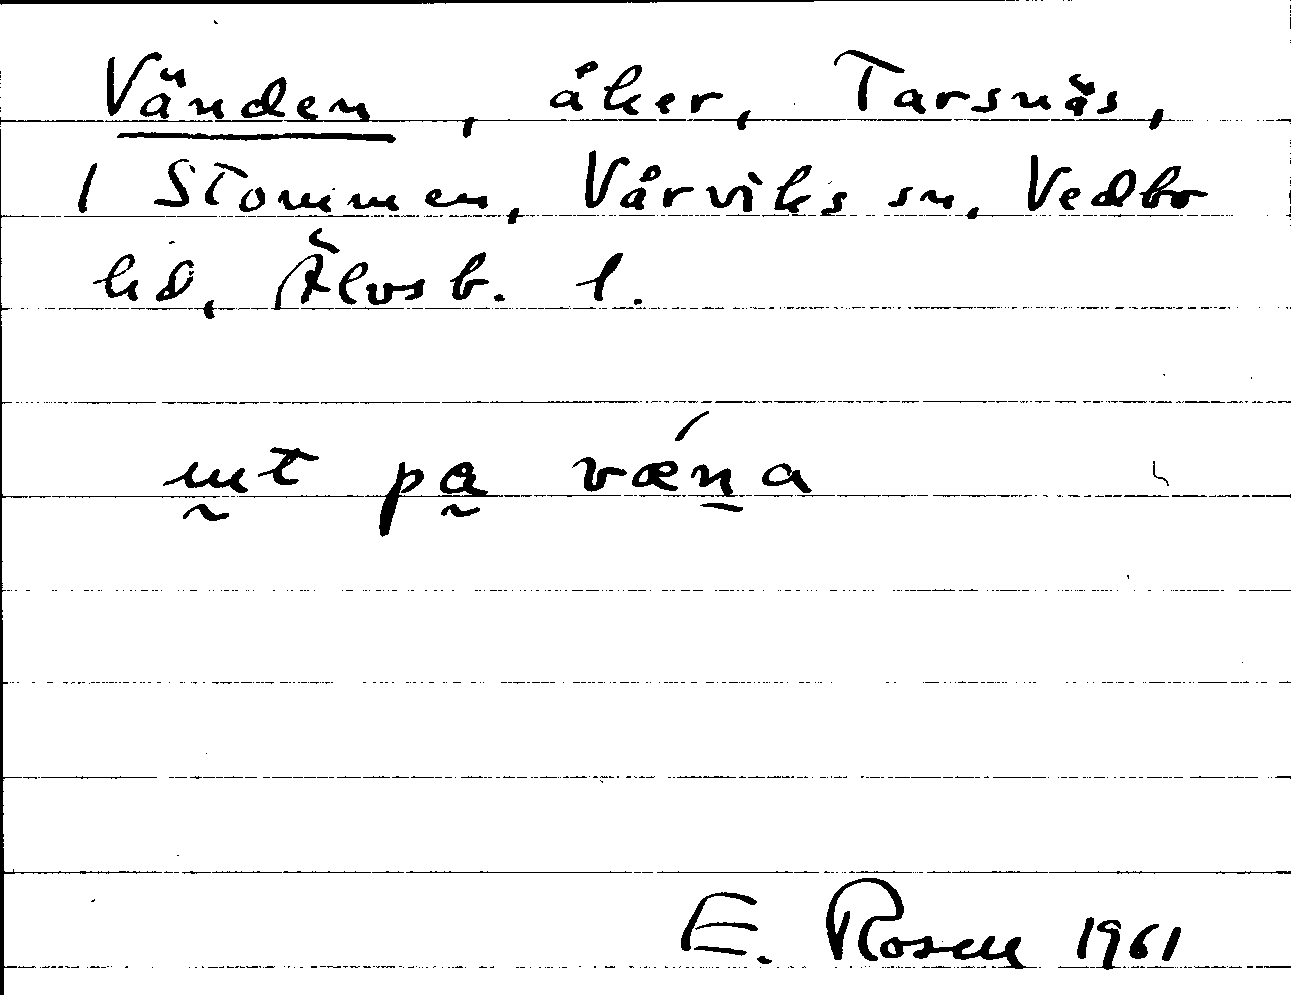 Vänden, åker, Tarsnäs,
1 Stommen, Vårviks sn. Vedbo
hd, Älvsb. l.
ut pa vǽna
E. Rosen 1961